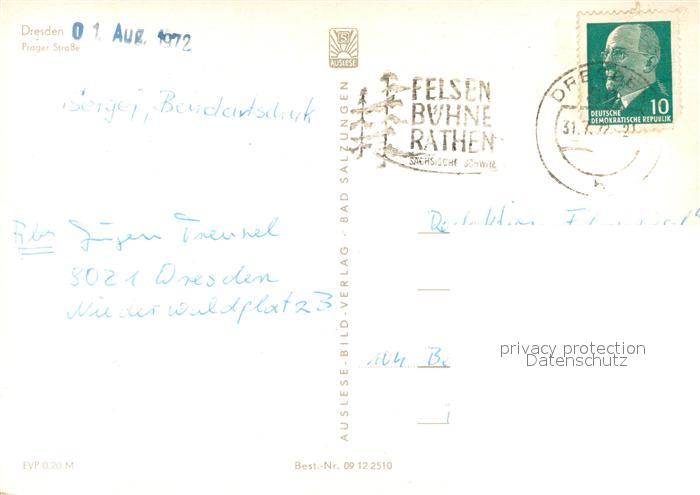 Dresden
Prager Straße
01. Aug. 1972
AUSLESE
Sergej, Bondartschuk
Abs. Jürgen Trenkel
8021 Dresden
Niederwaldplatz 3
AUSLESE-BILD-VERLAG · BAD SALZUNGEN
FELSEN
BÜHNE
RATHEN
SÄCHSISCHE SCHWEIZ
DRESDEN
31.7.72
10
DEUTSCHE
DEMOKRATISCHE REPUBLIK
Redaktion
104 B
privacy protection
Datenschutz
EVP 0,20 M
Best.-Nr. 09 12 2510